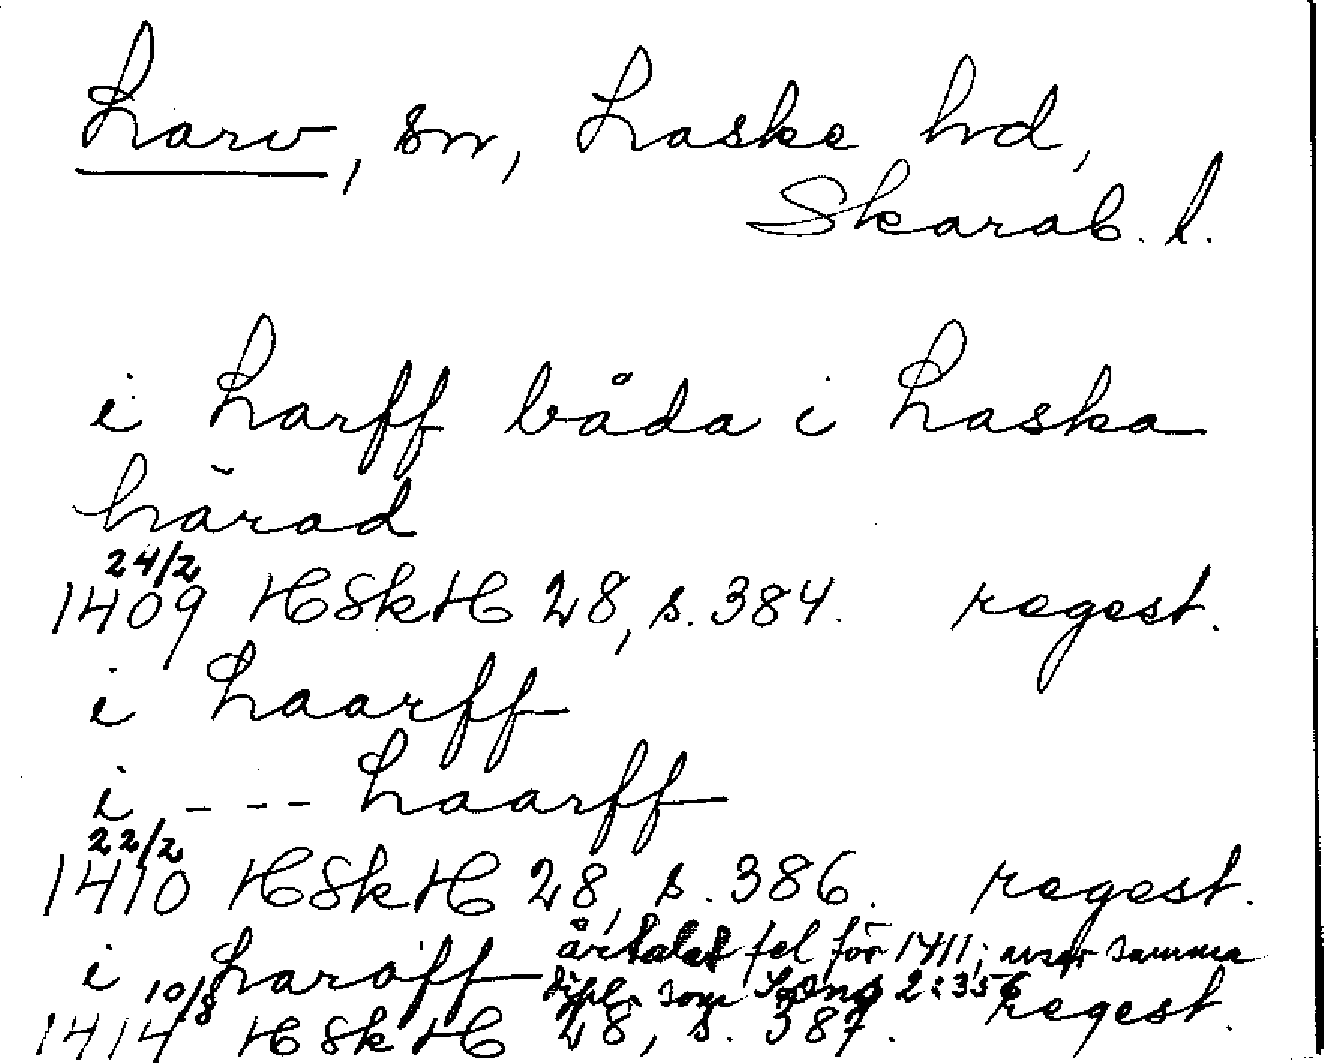 Larv, sn, Laske hd,
Skarab. l.
i Larff båda i Laska
härad
24/2
1409 HSkH 28, s. 384. regest.
i Laarff
i --- Laarff
22/2
1410 HSkH 28, s. 386. regest.
årtalet fel för 1411; avser samma
i Laroff dipl. som 2:356
10/8
1414 HSkH 28, s. 387. regest.